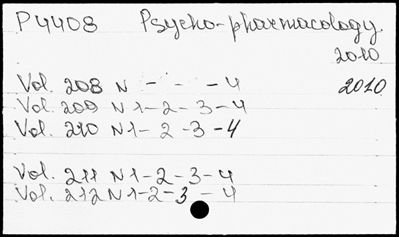 P4408 Psycho-pharmacology.
2010
Vol. 208 N - - - 4 2010
Vol. 209 N 1 - 2 - 3 - 4
Vol. 210 N 1 - 2 - 3 - 4
Vol. 211 N 1 - 2 - 3 - 4
Vol. 212 N 1 - 2 - 3 - 4